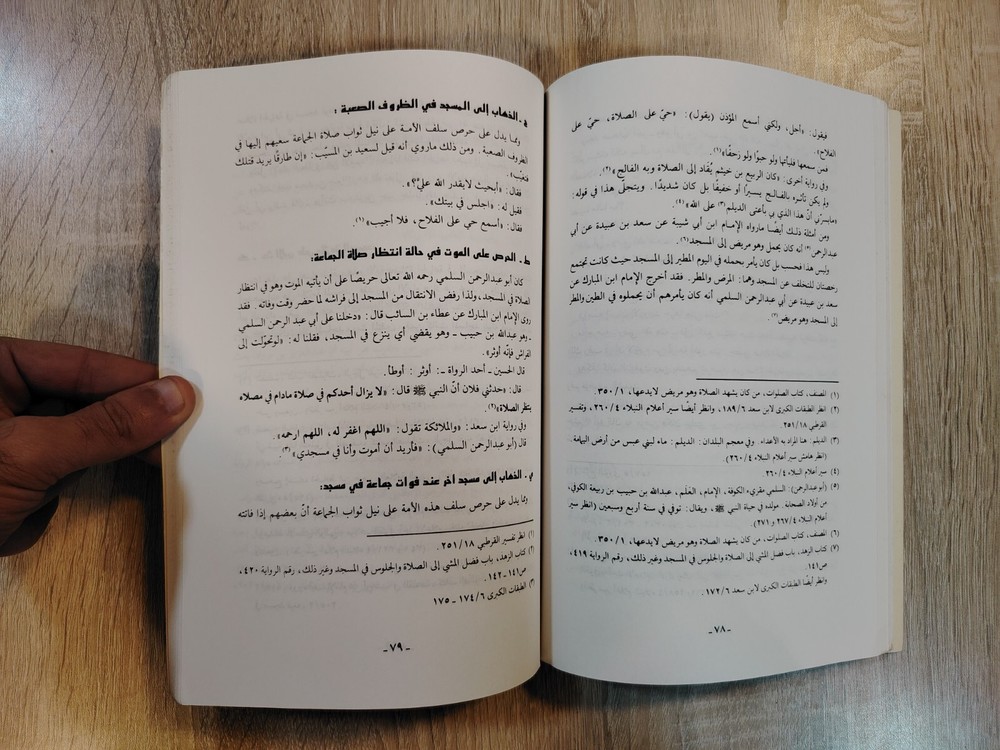 فيقول: «أجل، ولكني أسمع المؤذن (يقول): «حيّ على الصلاة، حيّ على
الفلاح».
فمن سمعها فليأتها ولو حبوًا ولو زحفًا»(١).
وفي رواية أخرى: «كان الربيع بن خيثم يُقاد إلى الصلاة وبه الفالج»(٢).
ولم يكن تأثره بالفالج يسيرًا أو خفيفًا بل كان شديدًا. ويتجلّى هذا في قوله:
«مايسرّني أنّ هذا الذي بي بأعتى الديلم(٣) على الله»(٤).
ومن أمثلة ذلك أيضًا مارواه الإمام ابن أبي شيبة عن سعد بن عبيدة عن أبي
عبدالرحمن(٥) أنه كان يحمل وهو مريض إلى المسجد(٦).
وليس هذا فحسب بل كان يأمر بحمله في اليوم المطير إلى المسجد حيث كانت تجتمع
رخصتان للتخلف عن المسجد وهما: المرض والمطر. فقد أخرج الإمام ابن المبارك عن
سعد بن عبيدة عن أبي عبدالرحمن السلمي أنه كان يأمرهم أن يحملوه في الطين والمطر
إلى المسجد وهو مريض(٧).
(١) المصنف، كتاب الصلوات، من كان يشهد الصلاة وهو مريض لايدعها، ٣٥٠/١.
(٢) انظر الطبقات الكبرى لابن سعد ١٨٩/٦، وانظر أيضًا سير أعلام النبلاء ٢٦٠/٤، وتفسير
القرطبي ٢٥١/١٨.
(٣) الديلم: هنا المراد به الأعداء. وفي معجم البلدان: الديلم: ماء لبني عبس من أرض اليمامة.
(انظر هامش سير أعلام النبلاء ٢٦٠/٤).
(٤) سير أعلام النبلاء ٢٦٠/٤
(٥) (أبو عبدالرحمن): السلمي مقرىء الكوفة، الإمام، العَلَم، عبدالله بن حبيب بن ربيعة الكوفي،
من أولاد الصحابة. مولده في حياة النبي ﷺ، ويقال: توفي في سنة أربع وسبعين (انظر سير
أعلام النبلاء ٢٦٧/٤ و٢٧١).
(٦) المصنف، كتاب الصلوات، من كان يشهد الصلاة وهو مريض لايدعها، ٣٥٠/١.
(٧) كتاب الزهد، باب فضل المشي إلى الصلاة والجلوس في المسجد وغير ذلك، رقم الرواية ٤١٩،
ص١٤١.
وانظر أيضًا الطبقات الكبرى لابن سعد ١٧٢/٦.
-٧٨-
الذهاب إلى المسجد في الظروف الصعبة:
ومما يدل على حرص سلف الأمة على نيل ثواب صلاة الجماعة سعيهم إليها في
الظروف الصعبة. ومن ذلك ماروي أنه قيل لسعيد بن المسيّب: «إن طارقًا يريد قتلك
فتغيّب».
فقال: «أبحيث لايقدر الله عليّ؟».
فقيل له: «اجلس في بيتك».
فقال: «أسمع حي على الفلاح، فلا أجيب»(١)
ط. الحرص على الموت في حالة انتظار صلاة الجماعة:
كان أبو عبدالرحمن السلمي رحمه الله تعالى حريصًا على أن يأتيه الموت وهو في انتظار
الصلاة في المسجد، ولذا رفض الانتقال من المسجد إلى فراشه لما حضر وقت وفاته. فقد
روى الإمام ابن المبارك عن عطاء بن السائب قال: «دخلنا على أبي عبد الرحمن السلمي
ـ وهو عبدالله بن حبيب ـ وهو يقضي أي ينزع في المسجد، فقلنا له: «لو تحوّلت إلى
الفراش فإنّه أوثر».
قال الحسين ـ أحد الرواة ـ: أوثر: أوطأ.
قال: «حدثني فلان أنّ النبي ﷺ قال: «لا يزال أحدكم في صلاة مادام في مصلاه
ينتظر الصلاة»(٢).
وفي رواية ابن سعد: «والملائكة تقول: «اللهم اغفر له، اللهم ارحمه».
قال (أبو عبدالرحمن السلمي): «فأريد أن أموت وأنا في مسجدي»(٣).
ي. الذهاب إلى مسجد آخر عند فوات جماعة في مسجد:
ومما يدل على حرص سلف هذه الأمة على نيل ثواب الجماعة أنّ بعضهم إذا فاتته
(١) انظر تفسير القرطبي ٢٥١/١٨.
(٢) كتاب الزهد، باب فضل المشي إلى الصلاة والجلوس في المسجد وغير ذلك، رقم الرواية ٤٢٠،
ص١٤١ـ١٤٢.
(٣) الطبقات الكبرى ١٧٤/٦ ـ ١٧٥
-٧٩-